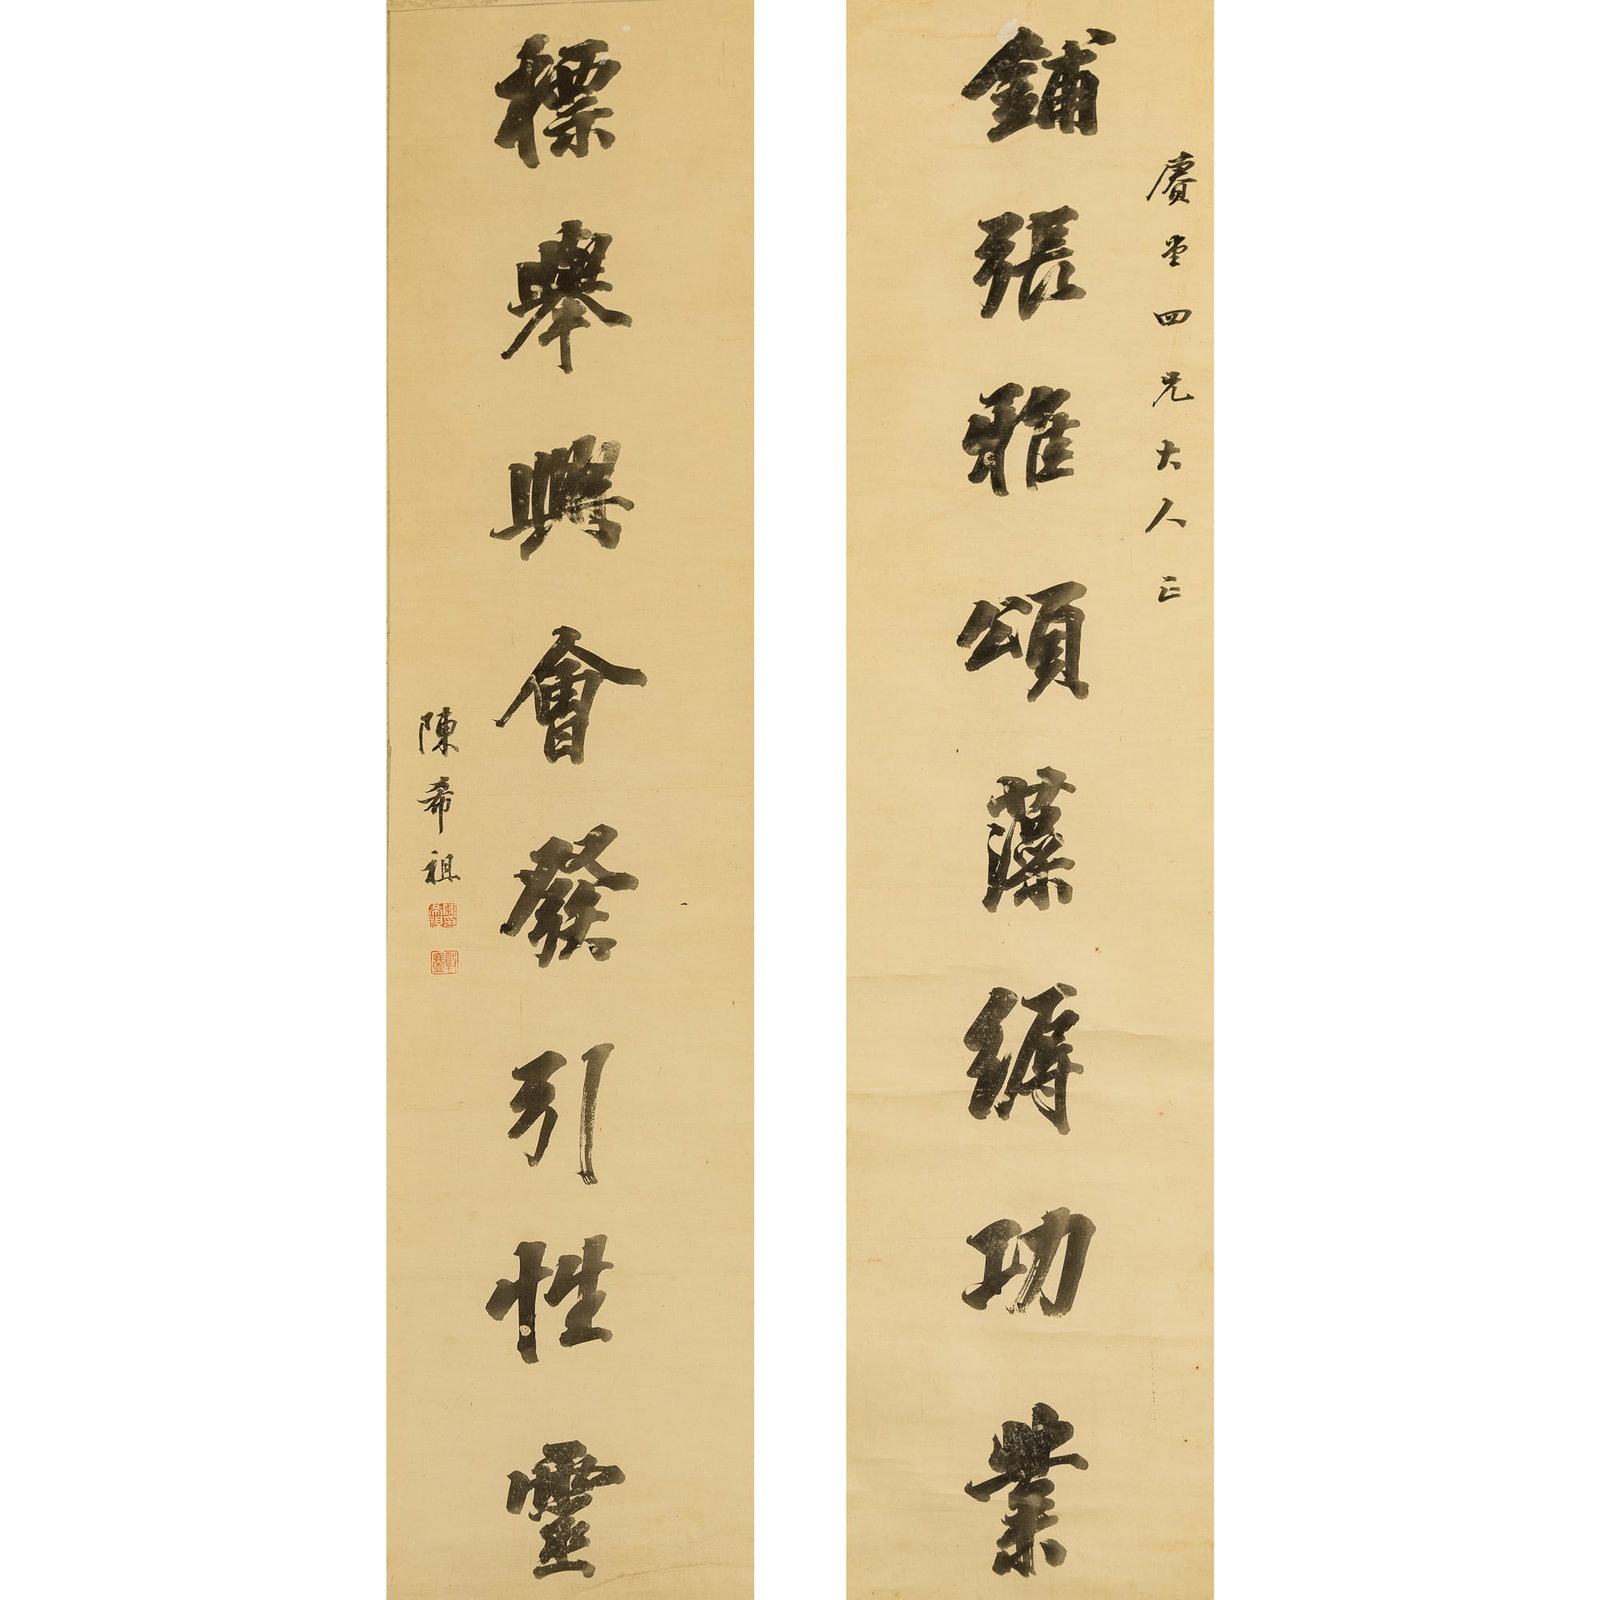 鋪張雅頌藻縟功業
賡堂四兄大人正
標舉興會發引性靈
陳希祖